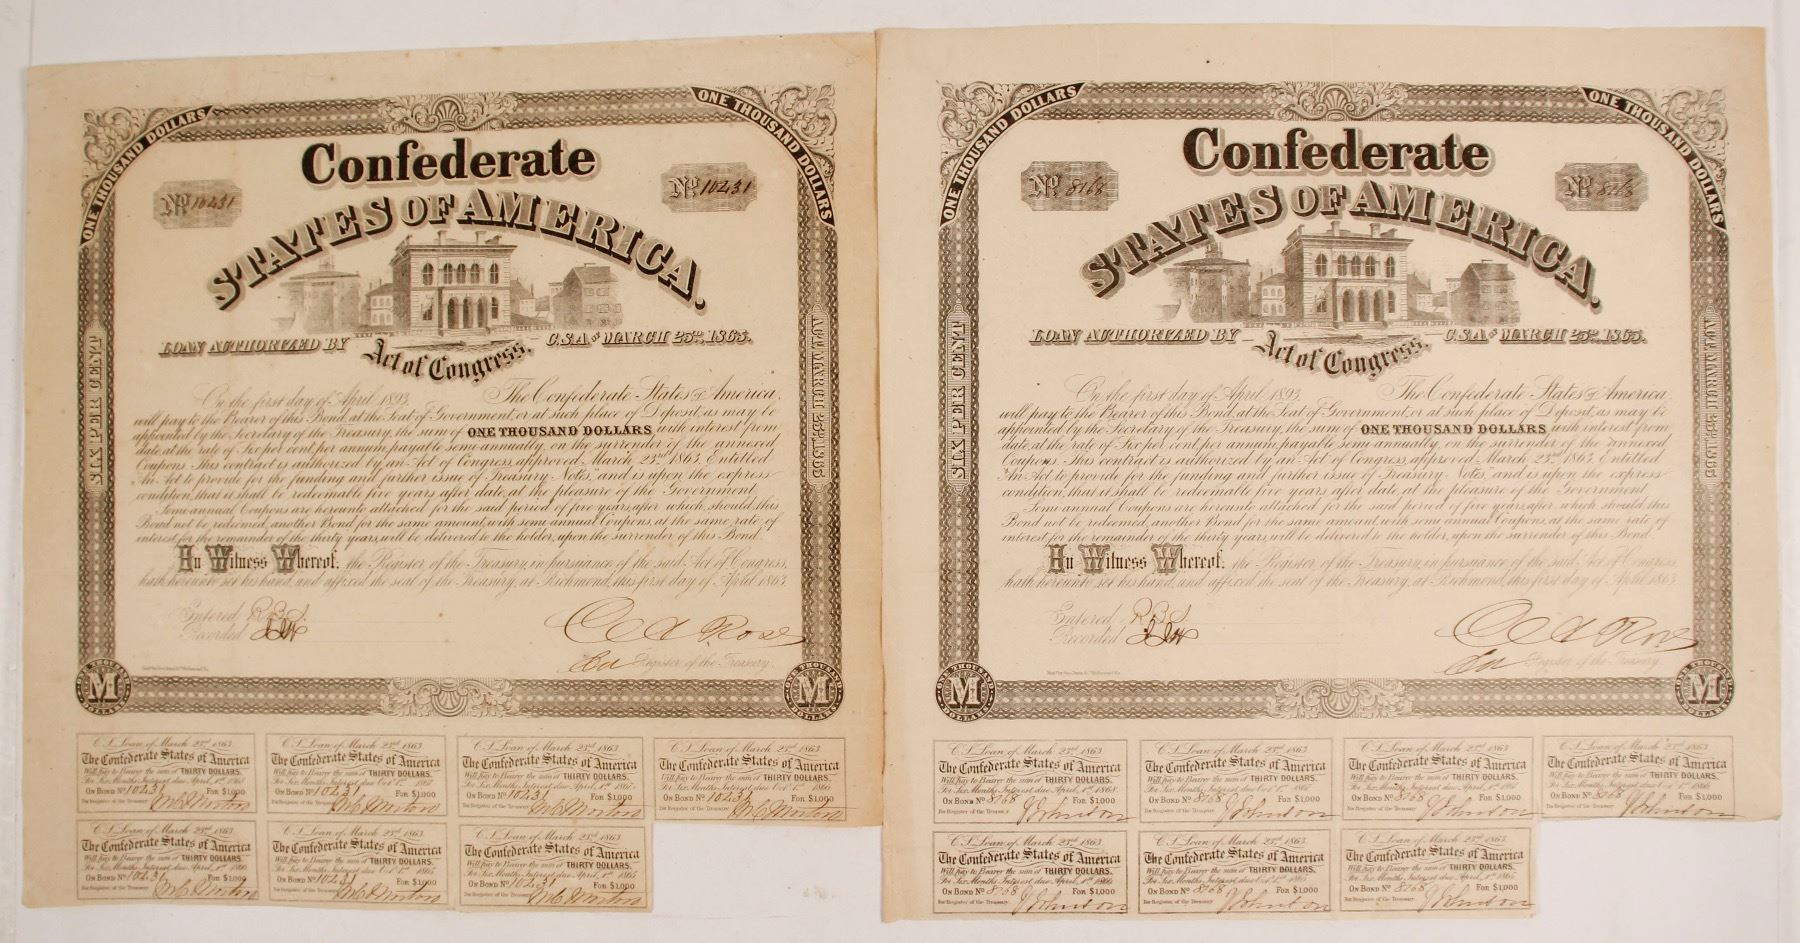 ONE THOUSAND DOLLARS
ONE THOUSAND DOLLARS
Confederate
STATES OF AMERICA.
No 10431
No 10431
LOAN AUTHORIZED BY
Act of Congress,
C.S.A. of MARCH 23RD, 1863.
SIX PER CENT
ACT MARCH 23D, 1863
On the first day of April 1893, The Confederate States of America,
will pay to the Bearer of this Bond, at the Seat of Government, or at such place of Deposit, as may be
appointed by the Secretary of the Treasury, the sum of ONE THOUSAND DOLLARS, with interest from
date, at the rate of Six per cent. per annum, payable semi-annually, on the surrender of the annexed
Coupons. This contract is authorized by an Act of Congress, approved March 23rd 1863, Entitled
"An Act to provide for the funding and further issue of Treasury Notes," and is upon the express
condition, that it shall be redeemable five years after date, at the pleasure of the Government.
Semi-annual Coupons are hereunto attached for the said period of five years, after which, should this
Bond not be redeemed, another Bond for the same amount, with semi annual Coupons, at the same rate of
interest, for the remainder of the thirty years, will be delivered to the holder, upon the surrender of this Bond.
In Witness Whereof, the Register of the Treasury, in pursuance of the said Act of Congress,
hath hereunto set his hand, and affixed the seal of the Treasury, at Richmond, this first day of April 1863
Entered R.B.S.
Recorded
C A Rose
Register of the Treasury.
ONE THOUSAND M DOLLARS
ONE THOUSAND M DOLLARS
C.S. Loan of March 23rd 1863
The Confederate States of America
Will pay to Bearer the sum of THIRTY DOLLARS.
For Six Months Interest due April, 1st 1868
ON BOND No 10431 FOR $1,000
For Register of the Treasury
C.S. Loan of March 23rd 1863
The Confederate States of America
Will pay to Bearer the sum of THIRTY DOLLARS.
For Six Months Interest due Oct 1st 1867
ON BOND No 10431 FOR $1,000
For Register of the Treasury
C.S. Loan of March 23rd 1863
The Confederate States of America
Will pay to Bearer the sum of THIRTY DOLLARS.
For Six Months Interest due April, 1st 1867
ON BOND No 10431 FOR $1,000
For Register of the Treasury
C.S. Loan of March 23rd 1863
The Confederate States of America
Will pay to Bearer the sum of THIRTY DOLLARS.
For Six Months Interest due Oct 1st 1866
ON BOND No 10431 FOR $1,000
For Register of the Treasury
C.S. Loan of March 23rd 1863
The Confederate States of America
Will pay to Bearer the sum of THIRTY DOLLARS.
For Six Months Interest due April, 1st 1866
ON BOND No 10431 FOR $1,000
For Register of the Treasury
C.S. Loan of March 23rd 1863
The Confederate States of America
Will pay to Bearer the sum of THIRTY DOLLARS.
For Six Months Interest due Oct 1st 1865
ON BOND No 10431 FOR $1,000
For Register of the Treasury
C.S. Loan of March 23rd 1863
The Confederate States of America
Will pay to Bearer the sum of THIRTY DOLLARS.
For Six Months Interest due April, 1st 1865
ON BOND No 10431 FOR $1,000
For Register of the Treasury
ONE THOUSAND DOLLARS
ONE THOUSAND DOLLARS
Confederate
STATES OF AMERICA.
No 8168
No 8168
LOAN AUTHORIZED BY
Act of Congress,
C.S.A. of MARCH 23RD, 1863.
SIX PER CENT
ACT MARCH 23D, 1863
On the first day of April 1893, The Confederate States of America,
will pay to the Bearer of this Bond, at the Seat of Government, or at such place of Deposit, as may be
appointed by the Secretary of the Treasury, the sum of ONE THOUSAND DOLLARS, with interest from
date, at the rate of Six per cent. per annum, payable semi annually, on the surrender of the annexed
Coupons. This contract is authorized by an Act of Congress, approved March 23rd 1863, Entitled
"An Act to provide for the funding and further issue of Treasury Notes," and is upon the express
condition, that it shall be redeemable five years after date, at the pleasure of the Government.
Semi-annual Coupons are hereunto attached for the said period of five years, after which, should this
Bond not be redeemed, another Bond for the same amount, with semi annual Coupons, at the same rate of
interest, for the remainder of the thirty years, will be delivered to the holder, upon the surrender of this Bond.
In Witness Whereof, the Register of the Treasury, in pursuance of the said Act of Congress,
hath hereunto set his hand, and affixed the seal of the Treasury, at Richmond, this first day of April 1863
Entered R.B.S.
Recorded
C A Rose
Register of the Treasury.
ONE THOUSAND M DOLLARS
ONE THOUSAND M DOLLARS
C.S. Loan of March 23rd 1863
The Confederate States of America
Will pay to Bearer the sum of THIRTY DOLLARS.
For Six Months Interest due April, 1st 1868
ON BOND No 8168 FOR $1,000
For Register of the Treasury J Johnston
C.S. Loan of March 23rd 1863
The Confederate States of America
Will pay to Bearer the sum of THIRTY DOLLARS.
For Six Months Interest due Oct 1st 1867
ON BOND No 8168 FOR $1,000
For Register of the Treasury J Johnston
C.S. Loan of March 23rd 1863
The Confederate States of America
Will pay to Bearer the sum of THIRTY DOLLARS.
For Six Months Interest due April, 1st 1867
ON BOND No 8168 FOR $1,000
For Register of the Treasury J Johnston
C.S. Loan of March 23rd 1863
The Confederate States of America
Will pay to Bearer the sum of THIRTY DOLLARS.
For Six Months Interest due Oct 1st 1866
ON BOND No 8168 FOR $1,000
For Register of the Treasury J Johnston
C.S. Loan of March 23rd 1863
The Confederate States of America
Will pay to Bearer the sum of THIRTY DOLLARS.
For Six Months Interest due April, 1st 1866
ON BOND No 8168 FOR $1,000
For Register of the Treasury J Johnston
C.S. Loan of March 23rd 1863
The Confederate States of America
Will pay to Bearer the sum of THIRTY DOLLARS.
For Six Months Interest due Oct 1st 1865
ON BOND No 8168 FOR $1,000
For Register of the Treasury J Johnston
C.S. Loan of March 23rd 1863
The Confederate States of America
Will pay to Bearer the sum of THIRTY DOLLARS.
For Six Months Interest due April, 1st 1865
ON BOND No 8168 FOR $1,000
For Register of the Treasury J Johnston